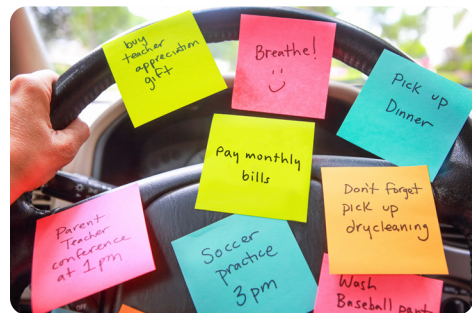 buy
teacher
appreciation
gift
Breathe!
Pick up
Dinner
pay monthly
bills
Don't forget
pick up
drycleaning
Parent
Teacher
conference
at 1pm
Soccer
practice
3pm
Wash
Baseball pant
OFF